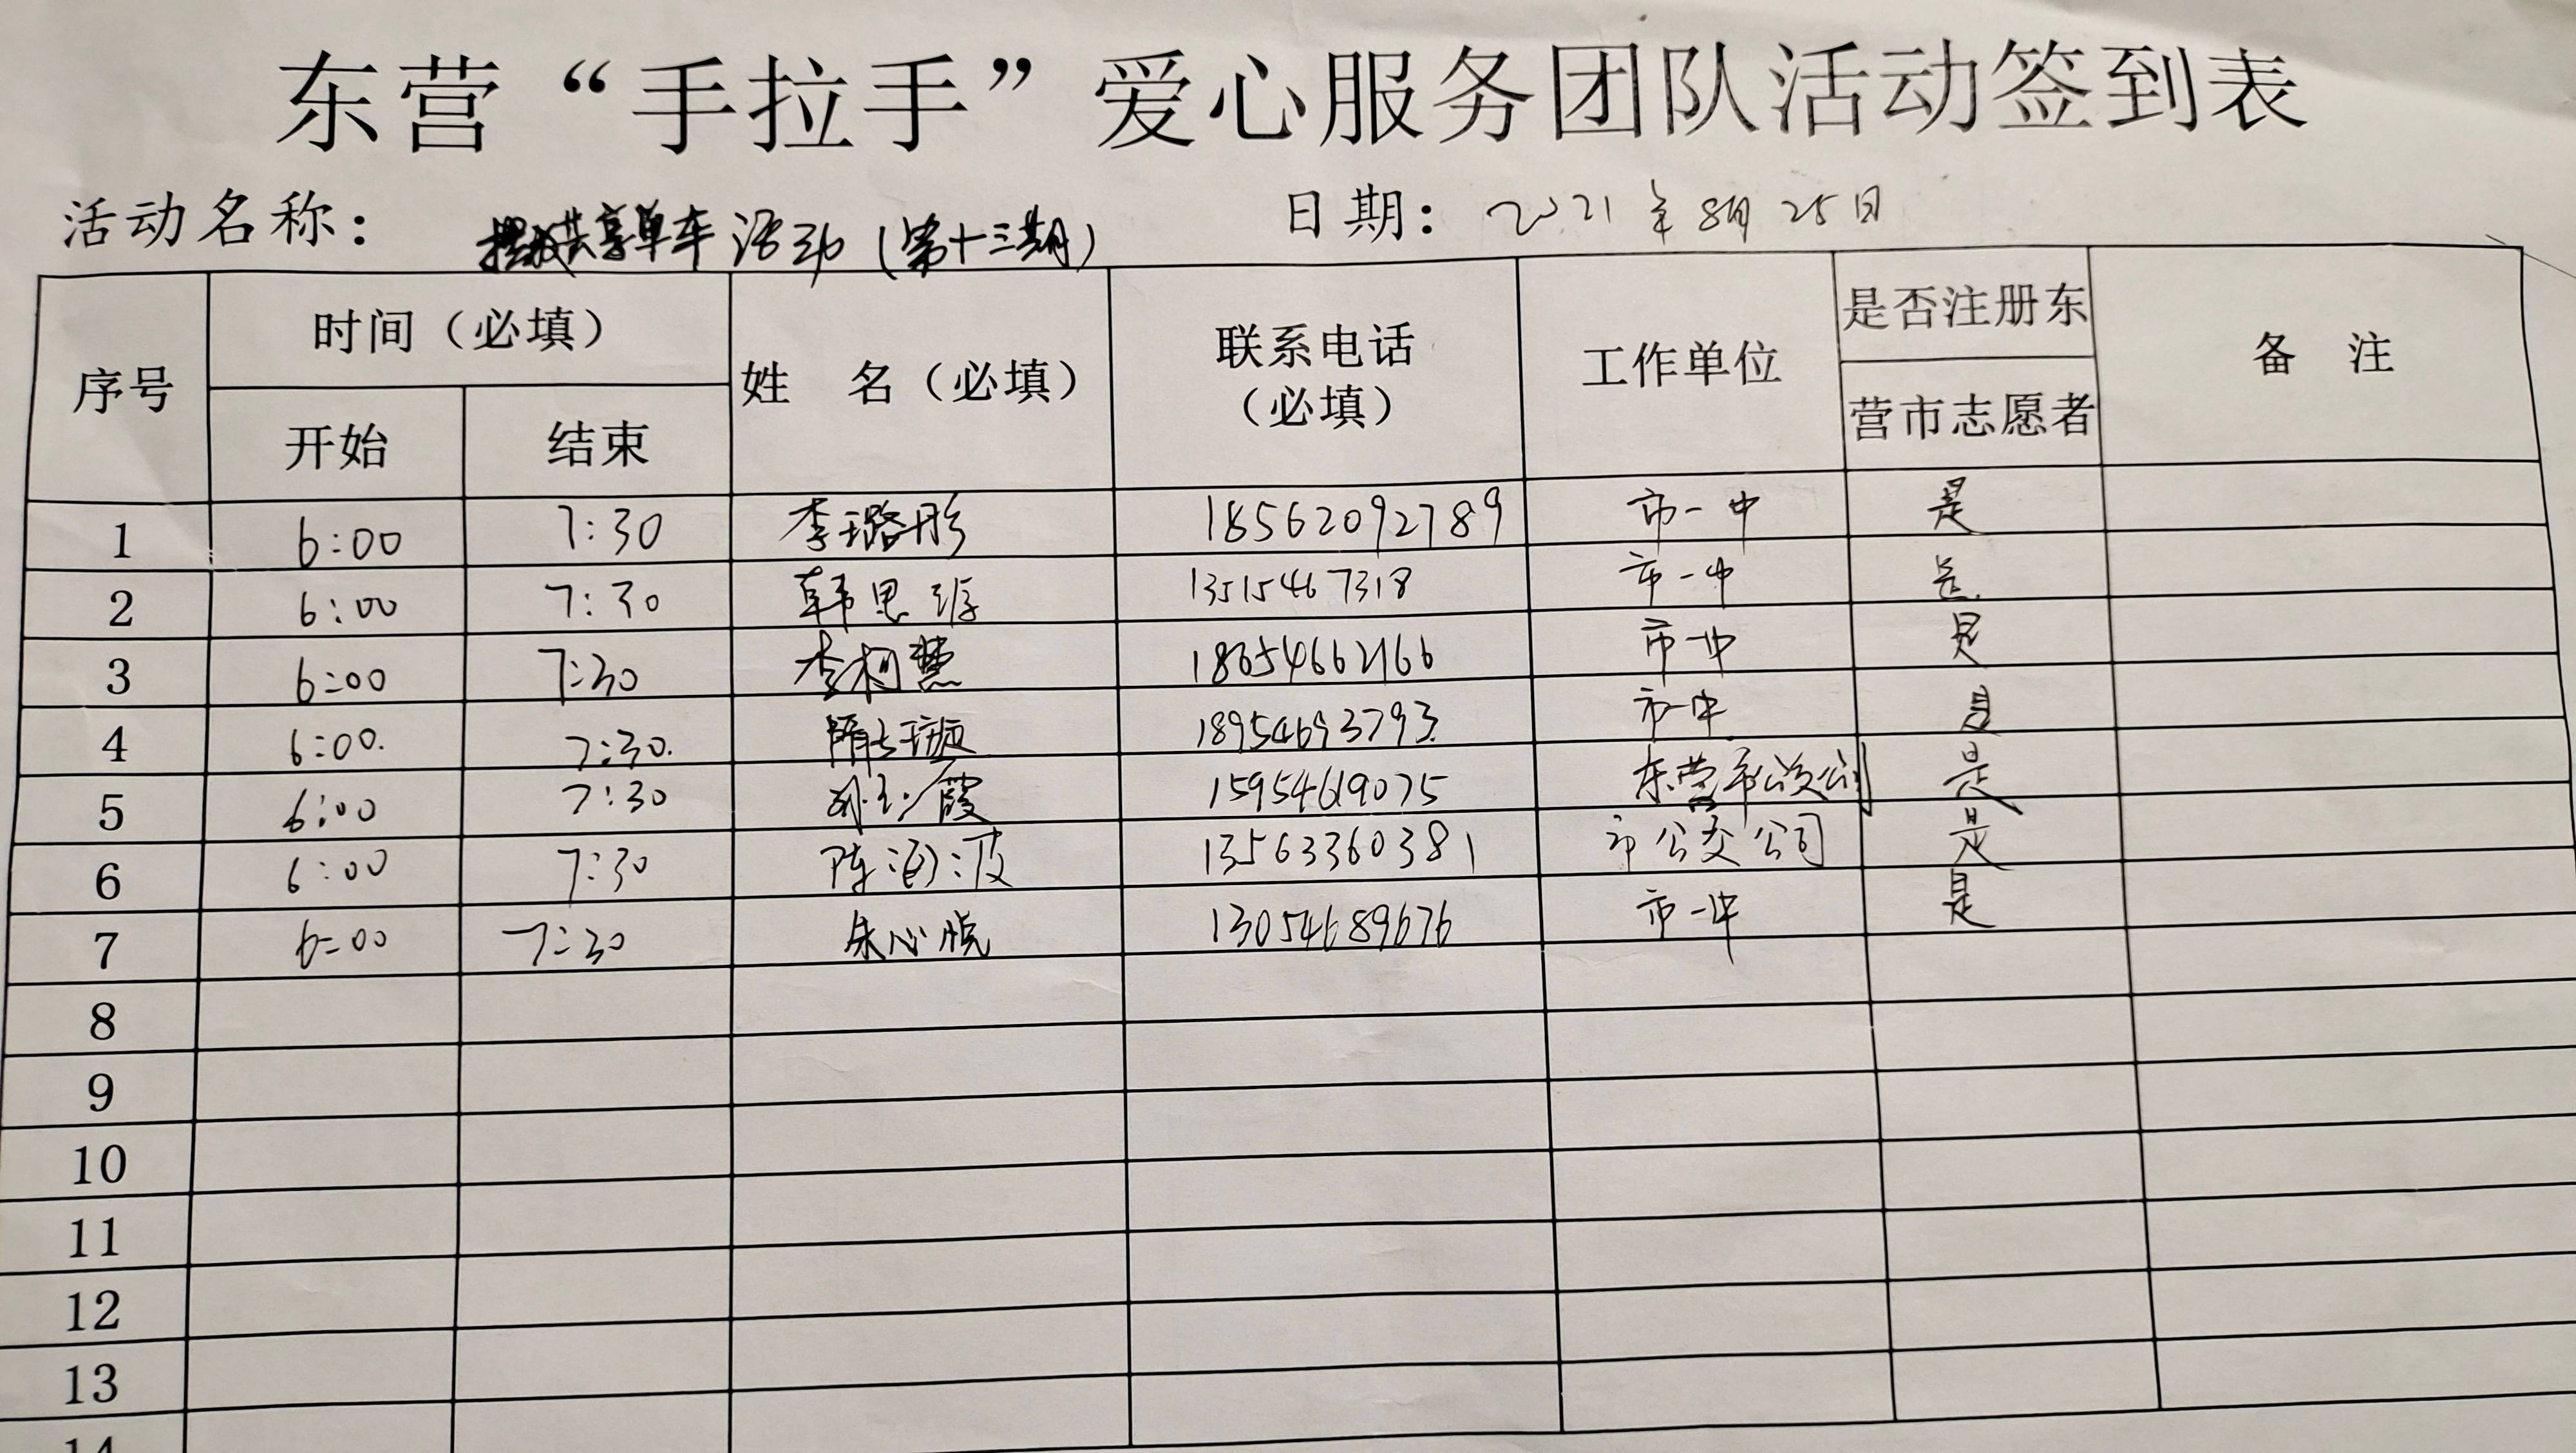 东营“手拉手”爱心服务团队活动签到表
活动名称： 共享单车活动（第十三期） 日期： 2021年8月25日
序号 时间（必填） 姓 名（必填） 联系电话（必填） 工作单位 是否注册东营市志愿者 备 注
开始 结束
1 6:00 7:30 李璐彤 18562092789 市一中 是
2 6:00 7:30 韩思 13515467318 市一中 是
3 6:00 7:30 李柯慧 18654662166 市一中 是
4 6:00. 7:30. 隋 璇 18954693793. 市一中 是
5 6:00 7:30 孙玉霞 15954619075 东营市公交公司 是
6 6:00 7:30 陈海波 13563360381 市公交公司 是
7 6:00 7:30 朱心悦 13054689676 市一中 是
8
9
10
11
12
13
14